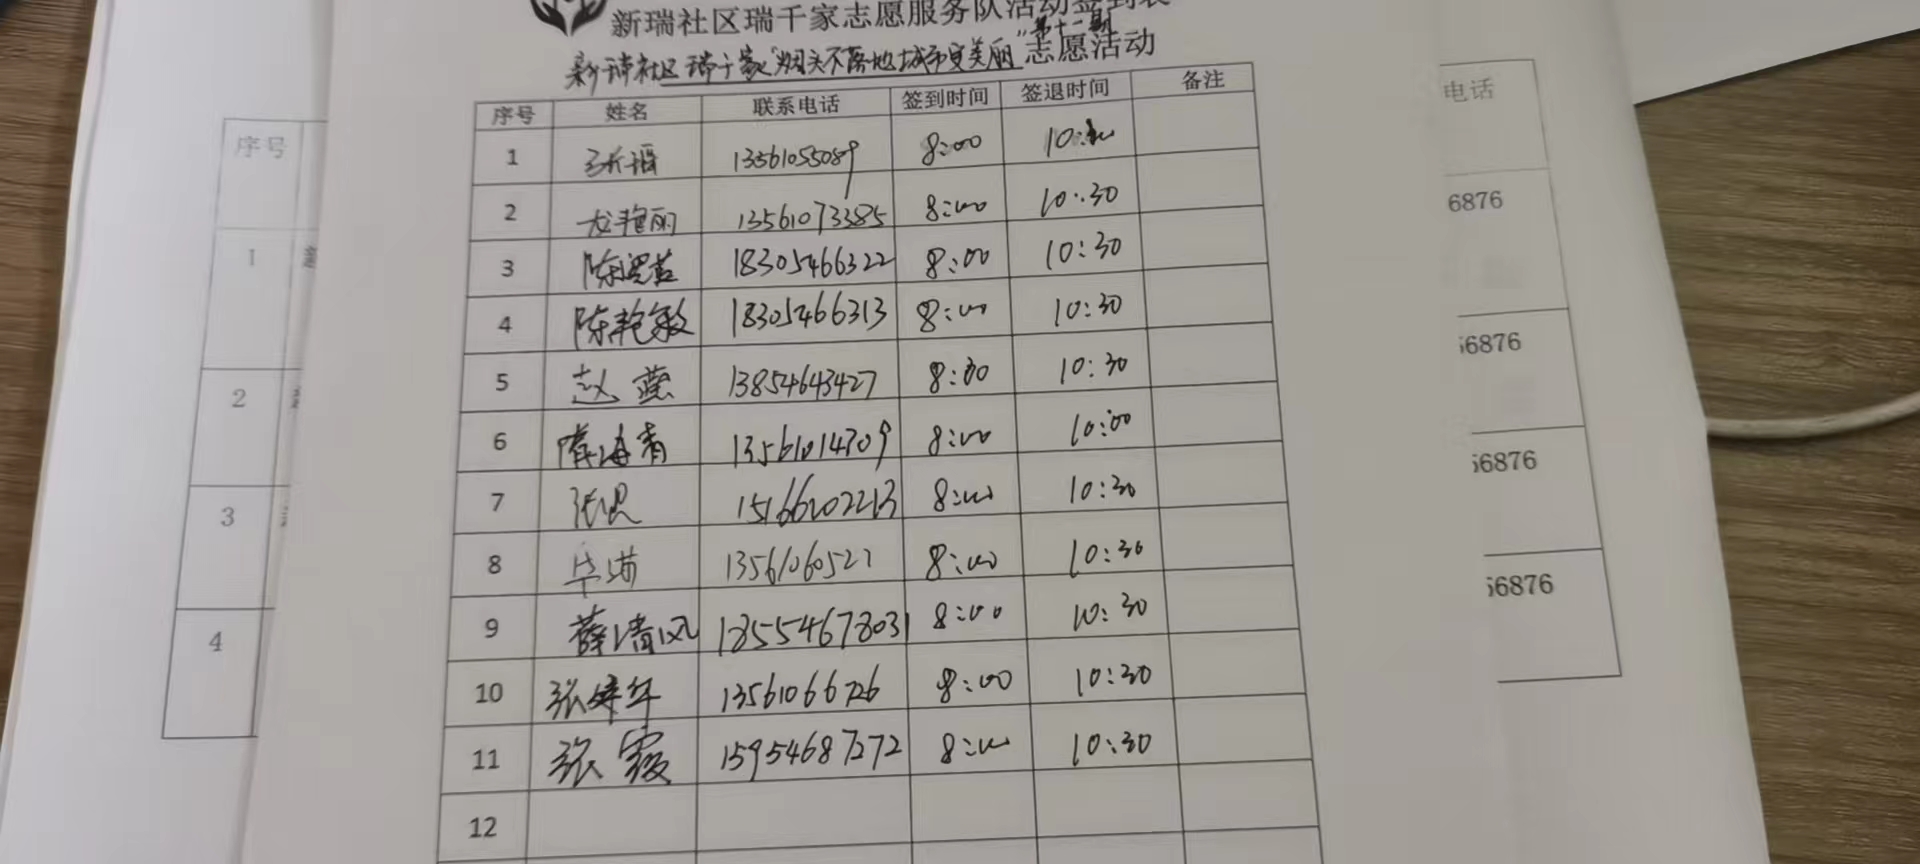 新瑞社区瑞千家志愿服务队活动签到表
第十一期
新瑞社区瑞千家"烟头不落地城市变美丽"志愿活动
序号 姓名 联系电话 签到时间 签退时间 备注
1 13561055089 8:00
2 龙艳丽 13561073385 8:00 10:30
3 18305466322 8:00 10:30
4 陈艳敏 18305466313 8:00 10:30
5 赵燕 13854643427 8:00 10:30
6 隋海青 13561014709 8:00 10:00
7 8:00 10:30
8 1356106527 8:00 10:30
9 薛清风 18554678031 8:00 10:30
10 8:00 10:30
11 张霞 15954687272 8:00 10:30
12
序号
1
2
3
4
电话
6876
56876
56876
56876